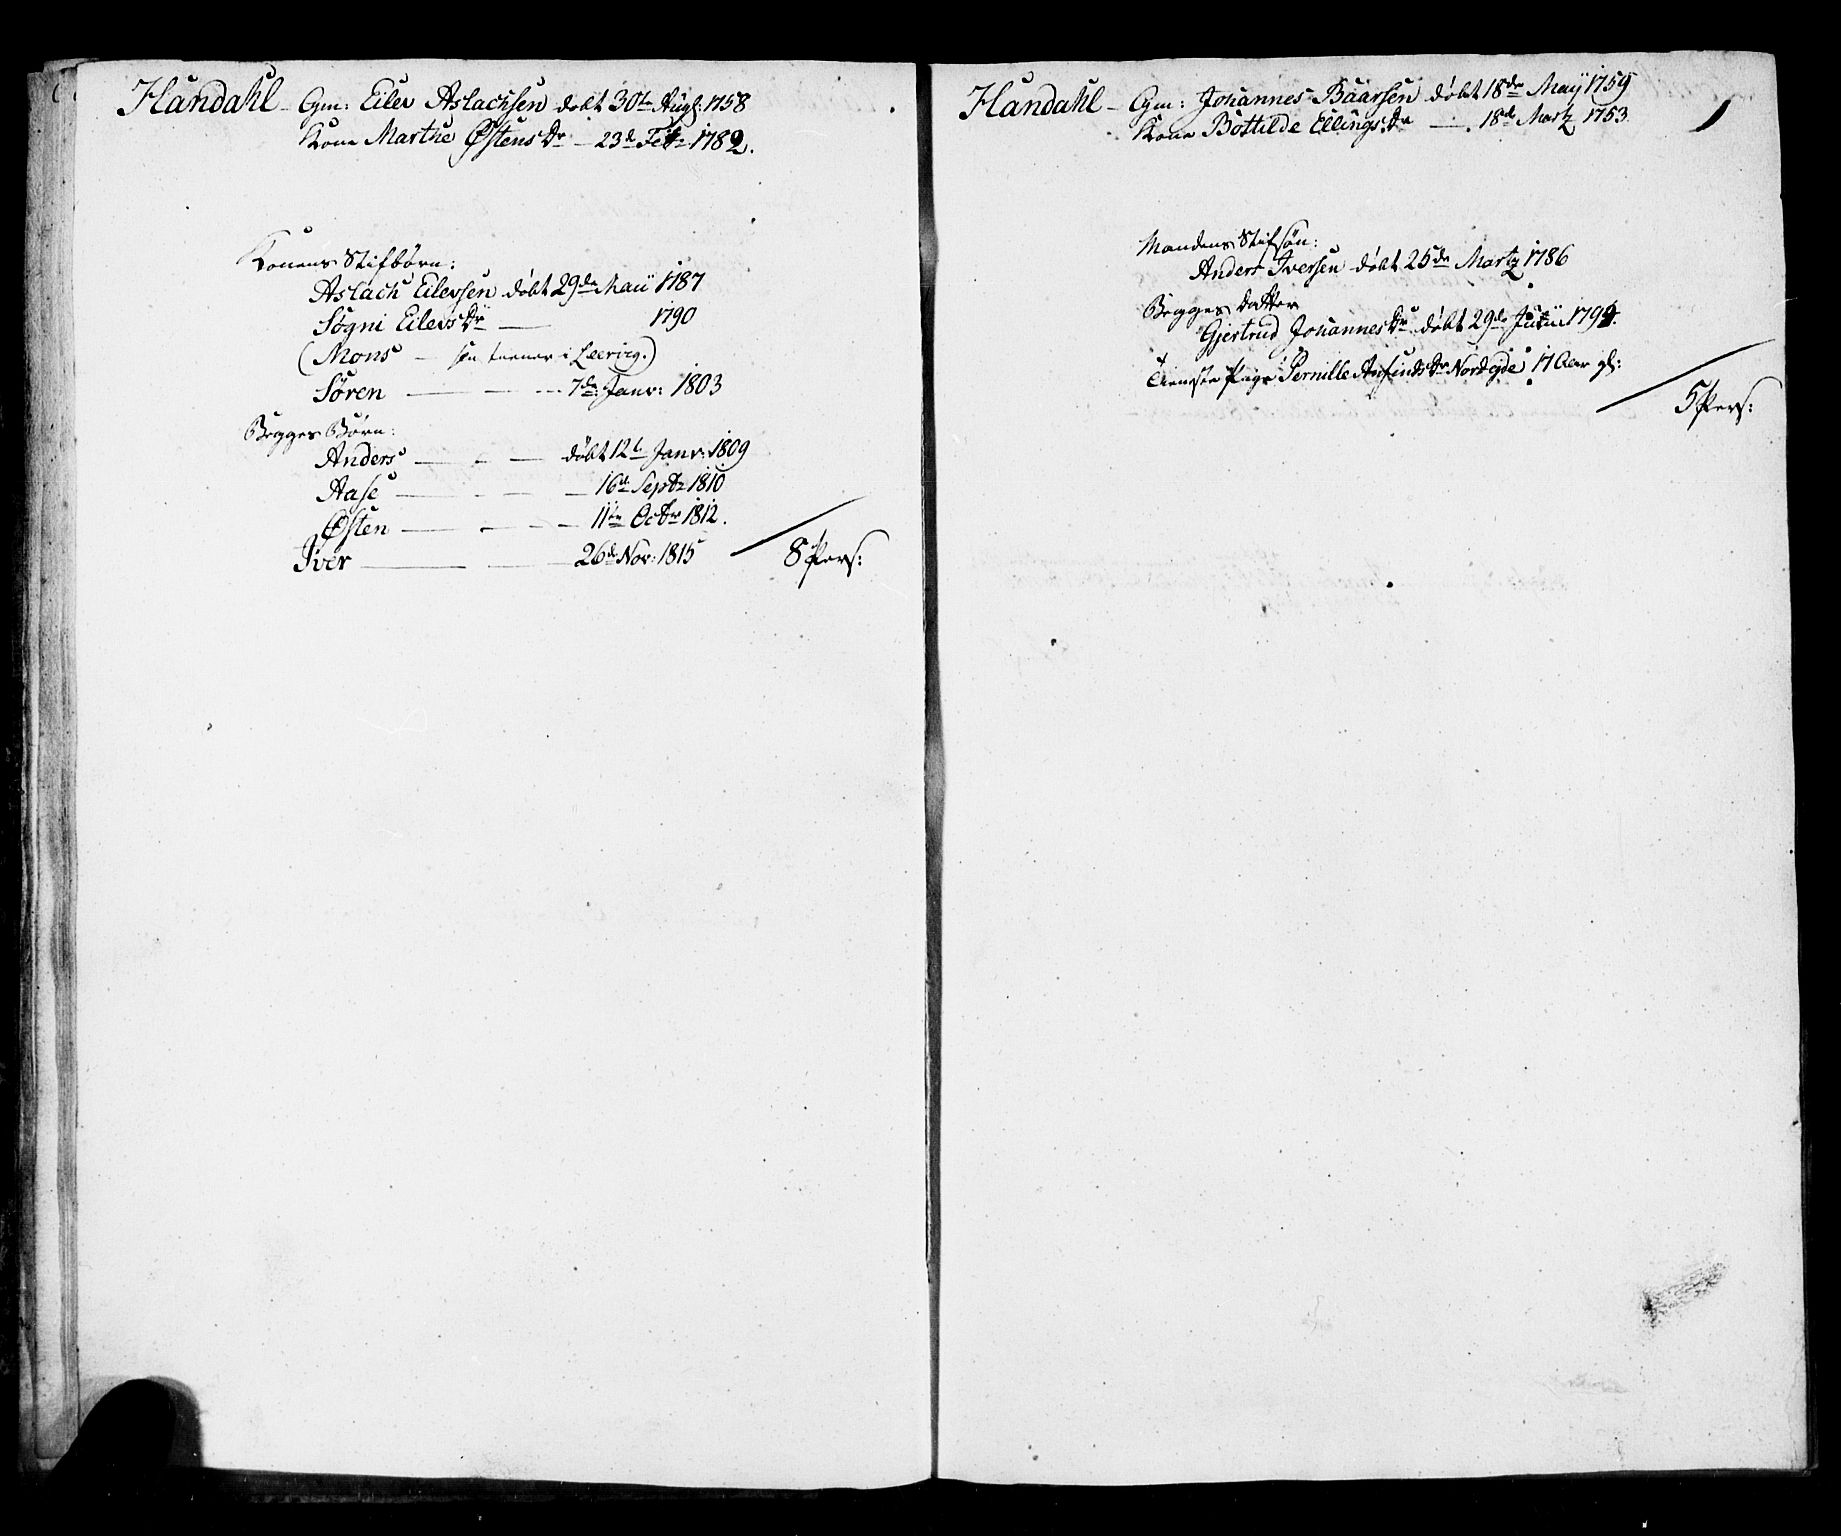 Handahl - Gm: Eilev Aslachsen døbt 30te Augs: 1758
Kone Marthe Østens dr - 23de Febr 1782.
Konens Stifbørn:
Aslach Eilevsen døbt 29de Maii 1787
Søgni Eilevs dr — 1790
(Mons - i Leervig.)
Søren — 7de Janv: 1803
Begges Børn:
Anders — døbt 12te Janv: 1809
Aase — 16de Septr 1810
Østen — 11te Octbr 1812.
Iver — 26de Nov: 1815
8 Pers:
Handahl - Gm: Johannes Baarsen døbt 18de Maÿ 1759
Kone Bottilde Ellings dr — 18de Martz 1753.
Mandens Stifsøn:
Anders Iversen døbt 25de Martz 1786
Begges datter
Gjertrud Johannes dr døbt 29de 179
Tieneste Pige Pernille Anfinds dr Nordejde 17 Aar gl:
5 Pers: